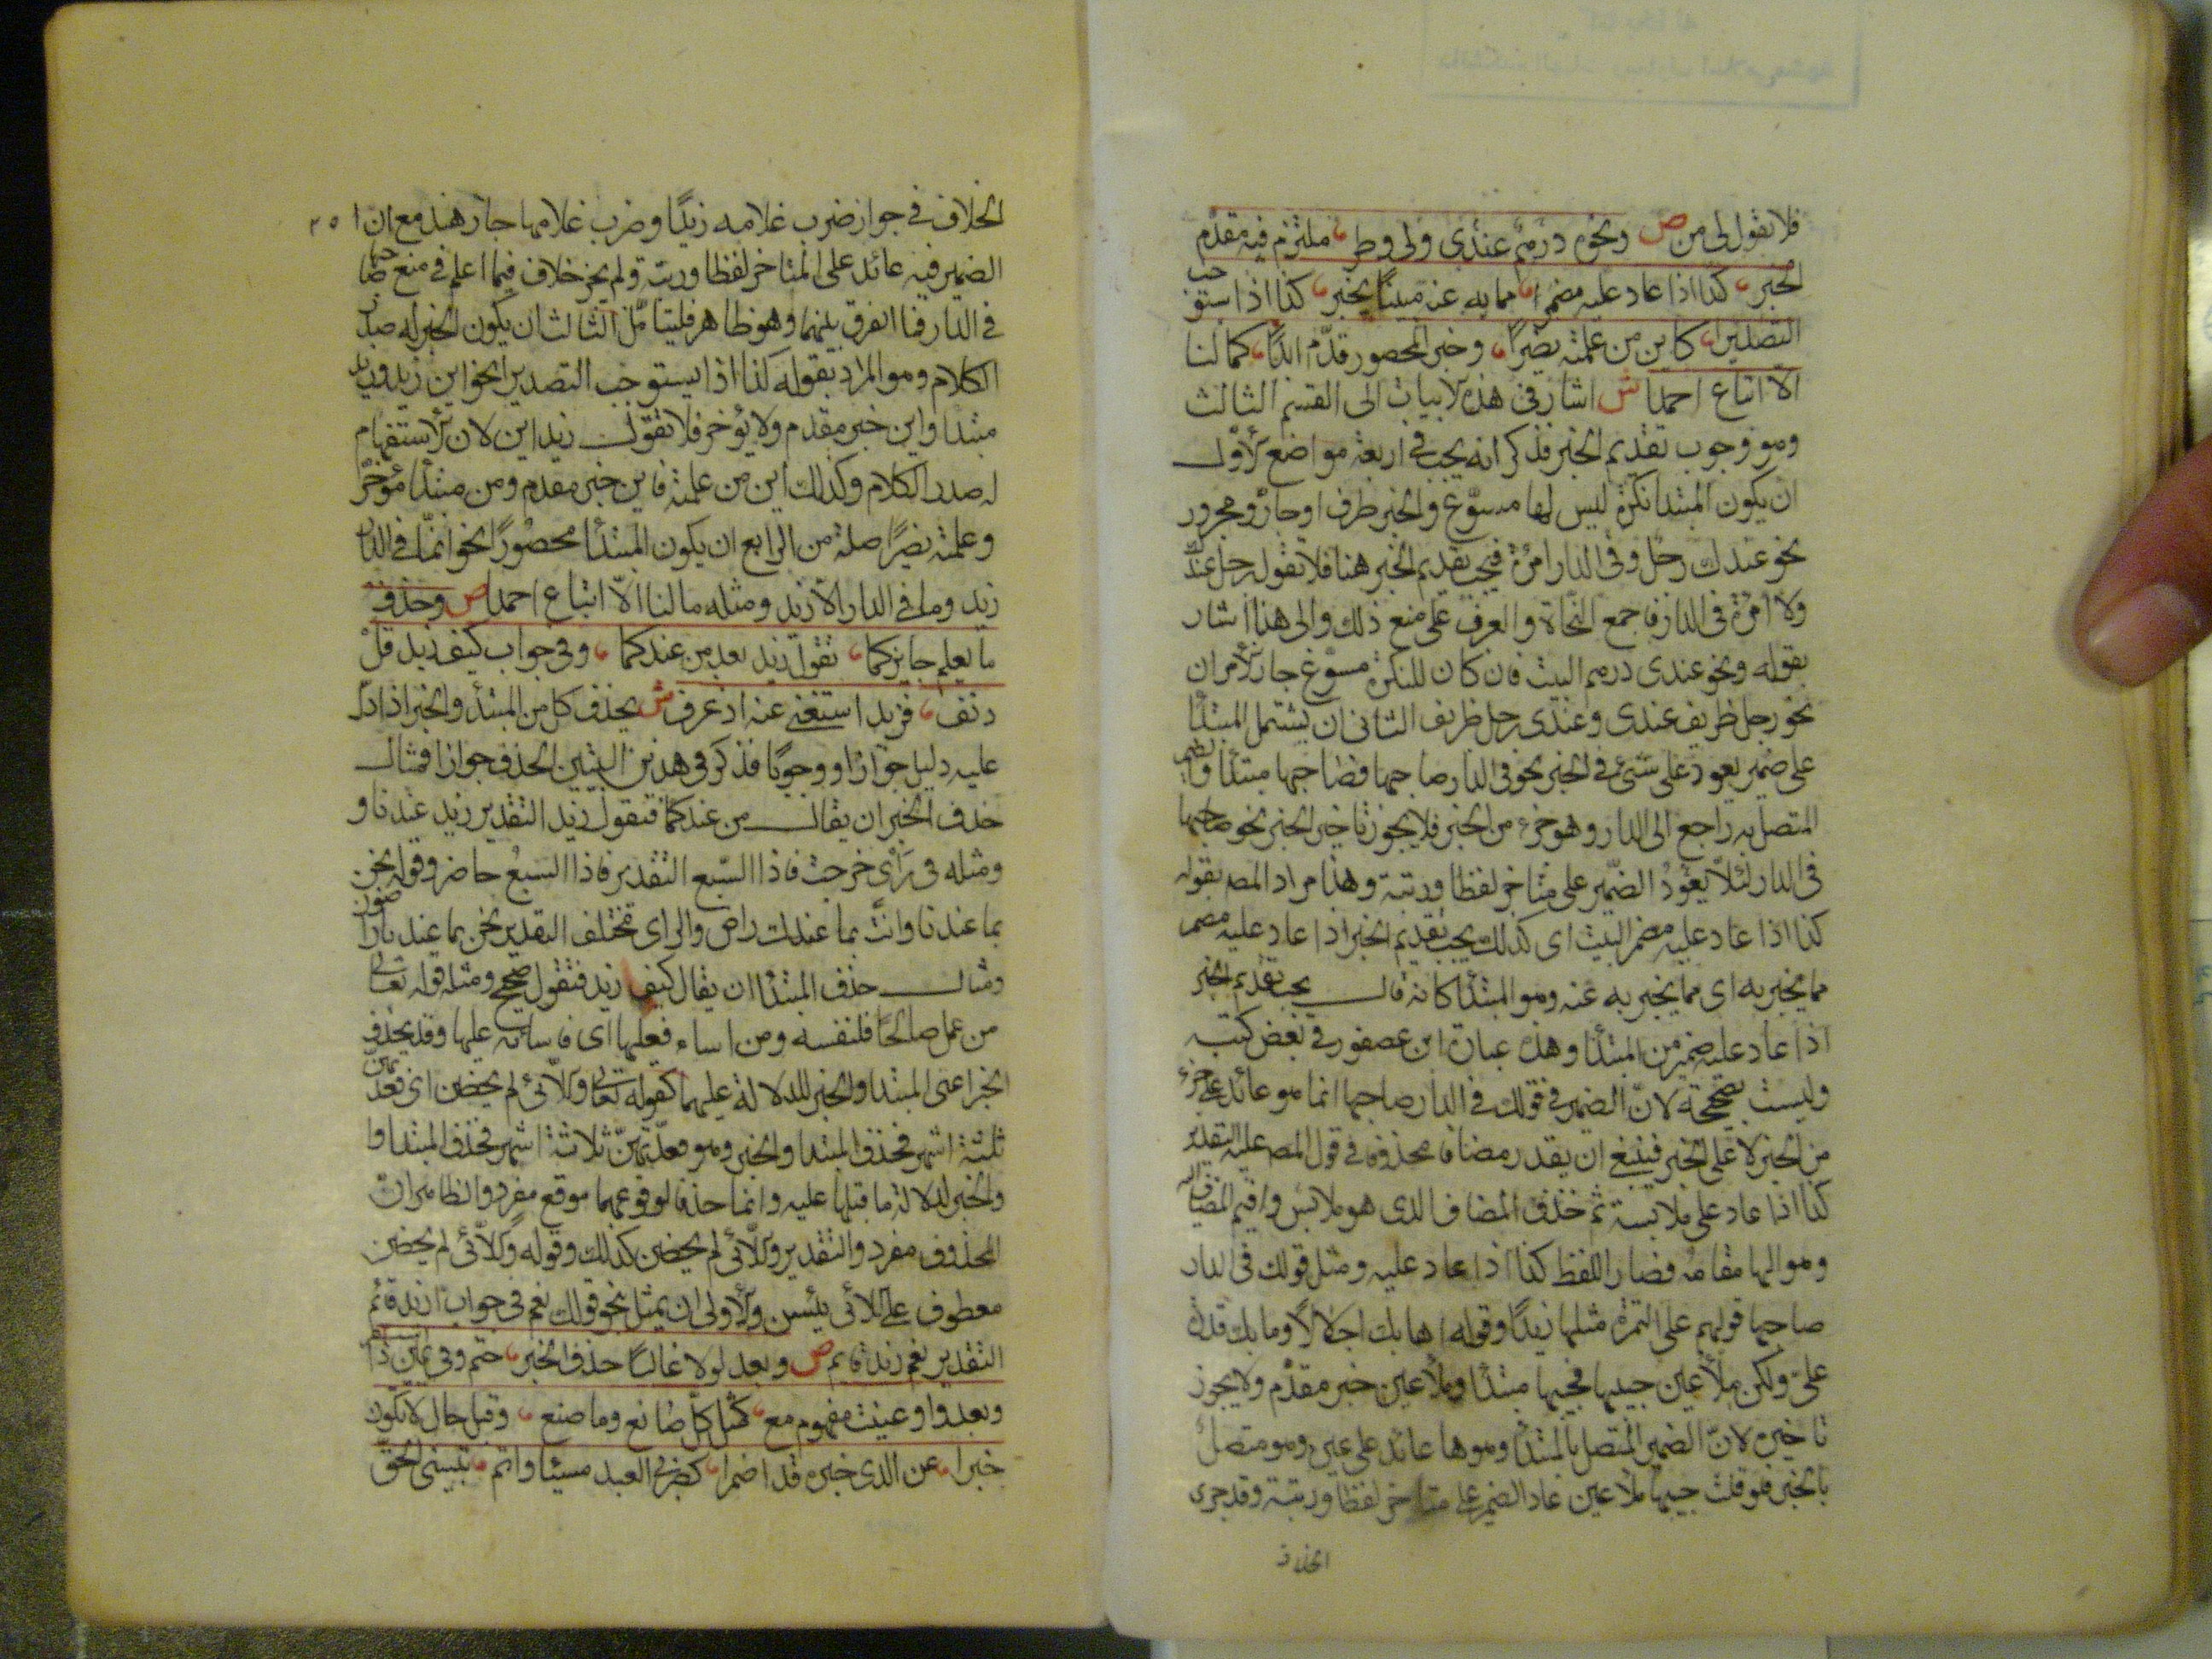 فلا تقول لى من ص ونحو درهم عندى ولى وطر ملتزم فيه مقدم
الخبر كذا اذا عاد عليه مضمر مما به عنه مبينا يخبر كذا اذا استوجب
التصديرا كاين من علمته نصيرا وخبر المحصور قدم ابدا كما لنا
الا اتباع احمدا ش اشار فى هذه الابيات الى القسم الثالث
وهو وجوب تقديم الخبر فذكر انه يجب فى اربعة مواضع الاول
ان يكون المبتدا نكرة ليس لها مسوّغ والخبر ظرف او جار ومجرور
نحو عندك رجل وفى الدار امرئة فيجب تقديم الخبر هنا فلا تقول رجل عندك
ولا امرئة فى الدار فاجمع النحاة والعرب على منع ذلك والى هذا اشار
بقوله ونحو عندى درهم البيت فان كان للنكرة مسوّغ جاز الامران
نحو رجل ظريف عندى وعندى رجل ظريف الثانى ان يشتمل المبتدأ
على ضمير يعود على شئ فى الخبر نحو فى الدار صاحبها فصاحبها مبتدأ والضمير
المتصل به راجع الى الدار وهو جزء من الخبر فلا يجوز تاخير الخبر نحو صاحبها
فى الدار لئلّا يعود الضمير على متاخر لفظا ورتبة وهذا مراد المصـ بقوله
كذا اذا عاد عليه مضمر البيت اى كذلك يجب تقديم الخبر اذا عاد عليه مضمر
مما يخبر به اى مما يخبر به عنه وهو المبتدأ كانه قال يجب تقديم الخبر
اذا عاد عليه ضمير من المبتدأ وهذه عبارة ابن عصفور فى بعض كتبه
وليست بصحيحة لان الضمير فى قولك فى الدار صاحبها انما هو عائد على جزء
من الخبر لا على الخبر فينبغى ان يقدر مضافا محذوفا فى قول المصـ عليه التقدير
كذا اذا عاد على ملابسة ثم حذف المضاف الذى هو ملابس واقيم المضاف اليه
وهو الها مقامه فصار اللفظ كذا اذا عاد عليه ومثل قولك فى الدار
صاحبها قولهم على التمرة مثلها زبدا وقوله اهابك اجلالا وما بك قدرة
علىّ ولكن ملأ عين حبيبها فحبيبها مبتدأ وملأ عين خبر مقدم ولا يجوز
تاخيره لانّ الضمير المتصل بالمبتدأ وهو ها عائد على عين وهو متصل
بالخبر فلو قلت حبيبها ملأ عين عاد الضمير على متاخر لفظا ورتبة وقد جرى
الخلاف
٢٥
الخلاف فى جواز ضرب غلامه زيدًا وضرب غلامها جار هند مع ان
الضمير فيه عائد على المتاخر لفظا ورتبة ولم يجز خلاف فيما اعلم فى منع صاحبها
فى الدار فما الفرق بينهما وهو ظاهر فليتأمّل الثالث ان يكون الخبر له صدر
الكلام وهو المراد بقوله كذا اذا يستوجب التصديرا نحو اين زيد فزيد
مبتدا واين خبر مقدم ولا يؤخر فلا تقول زيد اين لان الاستفهام
له صدر الكلام وكذلك اين من علمته فاين خبر مقدم ومن مبتدأ مؤخر
وعلمته نصيرًا صلة من الرابع ان يكون المبتدأ محصورًا نحو انّما فى الدار
زيد وما فى الدار الا زيد ومثله ما لنا الّا اتباع احمدا ص وحذف
ما يعلم جايز كما تقول زيد بعد من عندكما وفى جواب كيف زيد قل
دنف فزيد استغنى عنه اذ عرف ش يحذف كل من المبتدأ والخبر اذا دلّ
عليه دليل جوازًا او وجوبًا فذكر فى هذين البيتين الحذف جوازا فمثال
حذف الخبر ان يقال من عندكما فتقول زيد التقدير زيد عندنا و
ومثله فى رأى خرجت فاذا السّبع التقدير فاذا السبع حاضر وقوله نحن
بما عندنا وانت بما عندك راض والراى مختلف التقدير نحن بما عندنا راضون
ومثال حذف المبتدأ ان يقال كيف زيد فتقول صحيح ومثله قوله تعالى
من عمل صالحًا فلنفسه ومن اساء فعليها اى فاسائته عليها وقد يحذف
الجزا عنى المبتدا والخبر للدلالة عليهما كقوله تعالى واللّائى لم يحضن اى فعدتهن
ثلثة اشهر فحذف المبتدا والخبر وهو فعدّتهنّ ثلاثة اشهر فحذف المبتدا وا
والخبر لدلالة ما قبلها عليه وانما حذفا لوقوعهما موقع مفرد والظاهر ان
المحذوف مفرد والتقدير واللّائى لم يحضن كذلك وقوله واللّائى لم يحضن
معطوف على اللائى يئسن والاولى ان يمثل بنحو قولك نعم فى جواب ازيد قائم
التقدير نعم زيد قايم ص وبعد لولا غالبًا حذف الخبر حتم وفى يمين ذا استقر
وبعد واو عينت مفهوم مع كمثل كلّ صانع وما صنع وقبل حال لا يكون
خبرا عن الذى خبره قد اضمرا كضربى العبد مسيئا واتم تبيينى الحق